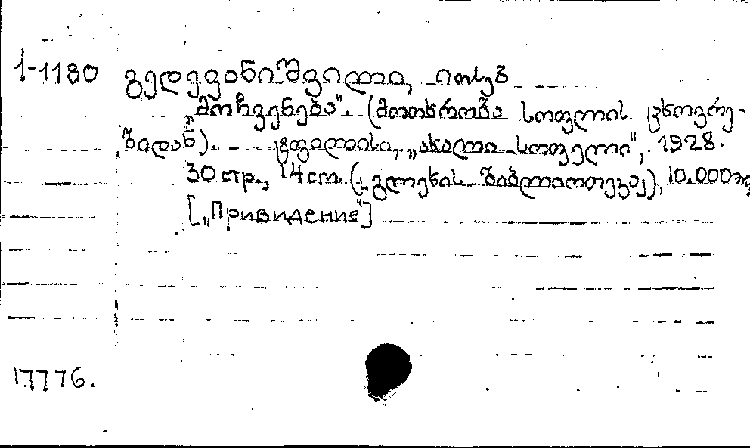 1-1180 გედევანიშვილი, იოსებ
„მოჩვენება". (მოთხრობა სოფლის ცხოვრე-
ბიდან). ტფილისი, „ახალი სოფელი", 1928.
30 стр., 14 cm. („გლეხის ბიბლიოთეკა), 10.000 ც
[„Привидение"]
17776.